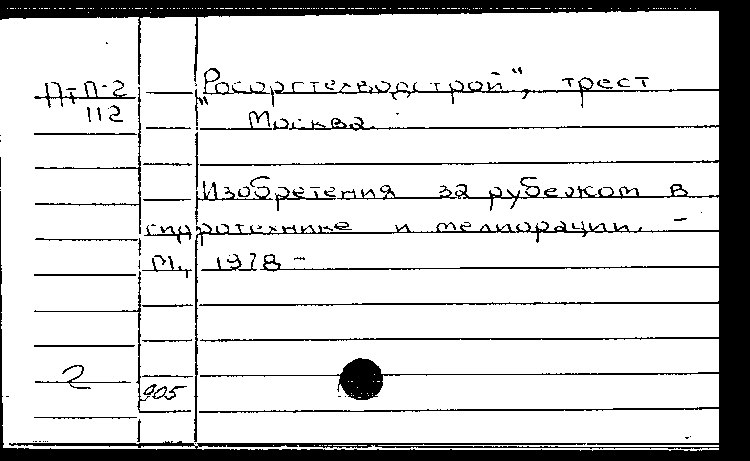 ПтП-2
112
„Росоргтехводстрой", трест
Москва.
Изобретения за рубежом в
гидротехнике и мелиорации. -
М., 1978 -
2
905